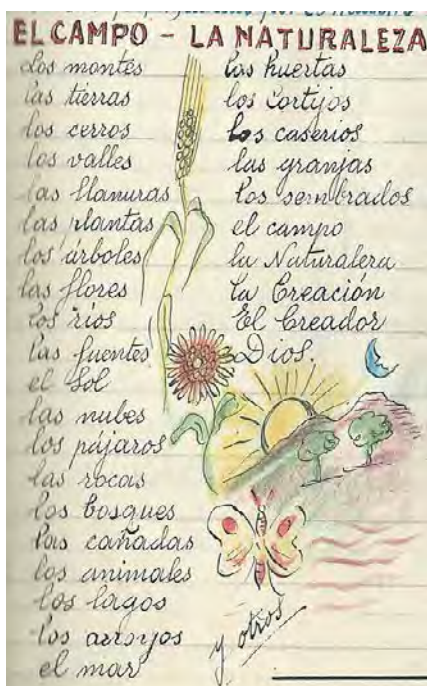 EL CAMPO - LA NATURALEZA
Los montes
las tierras
los cerros
los valles
las llanuras
las plantas
los árboles
las flores
los ríos
las fuentes
el Sol
las nubes
los pájaros
las rocas
los bosques
las cañadas
los animales
los lagos
los arroyos
el mar
las huertas
los cortijos
los caserios
las granjas
los sembrados
el campo
la Naturaleza
la Creación
El Creador
Dios.
y otros